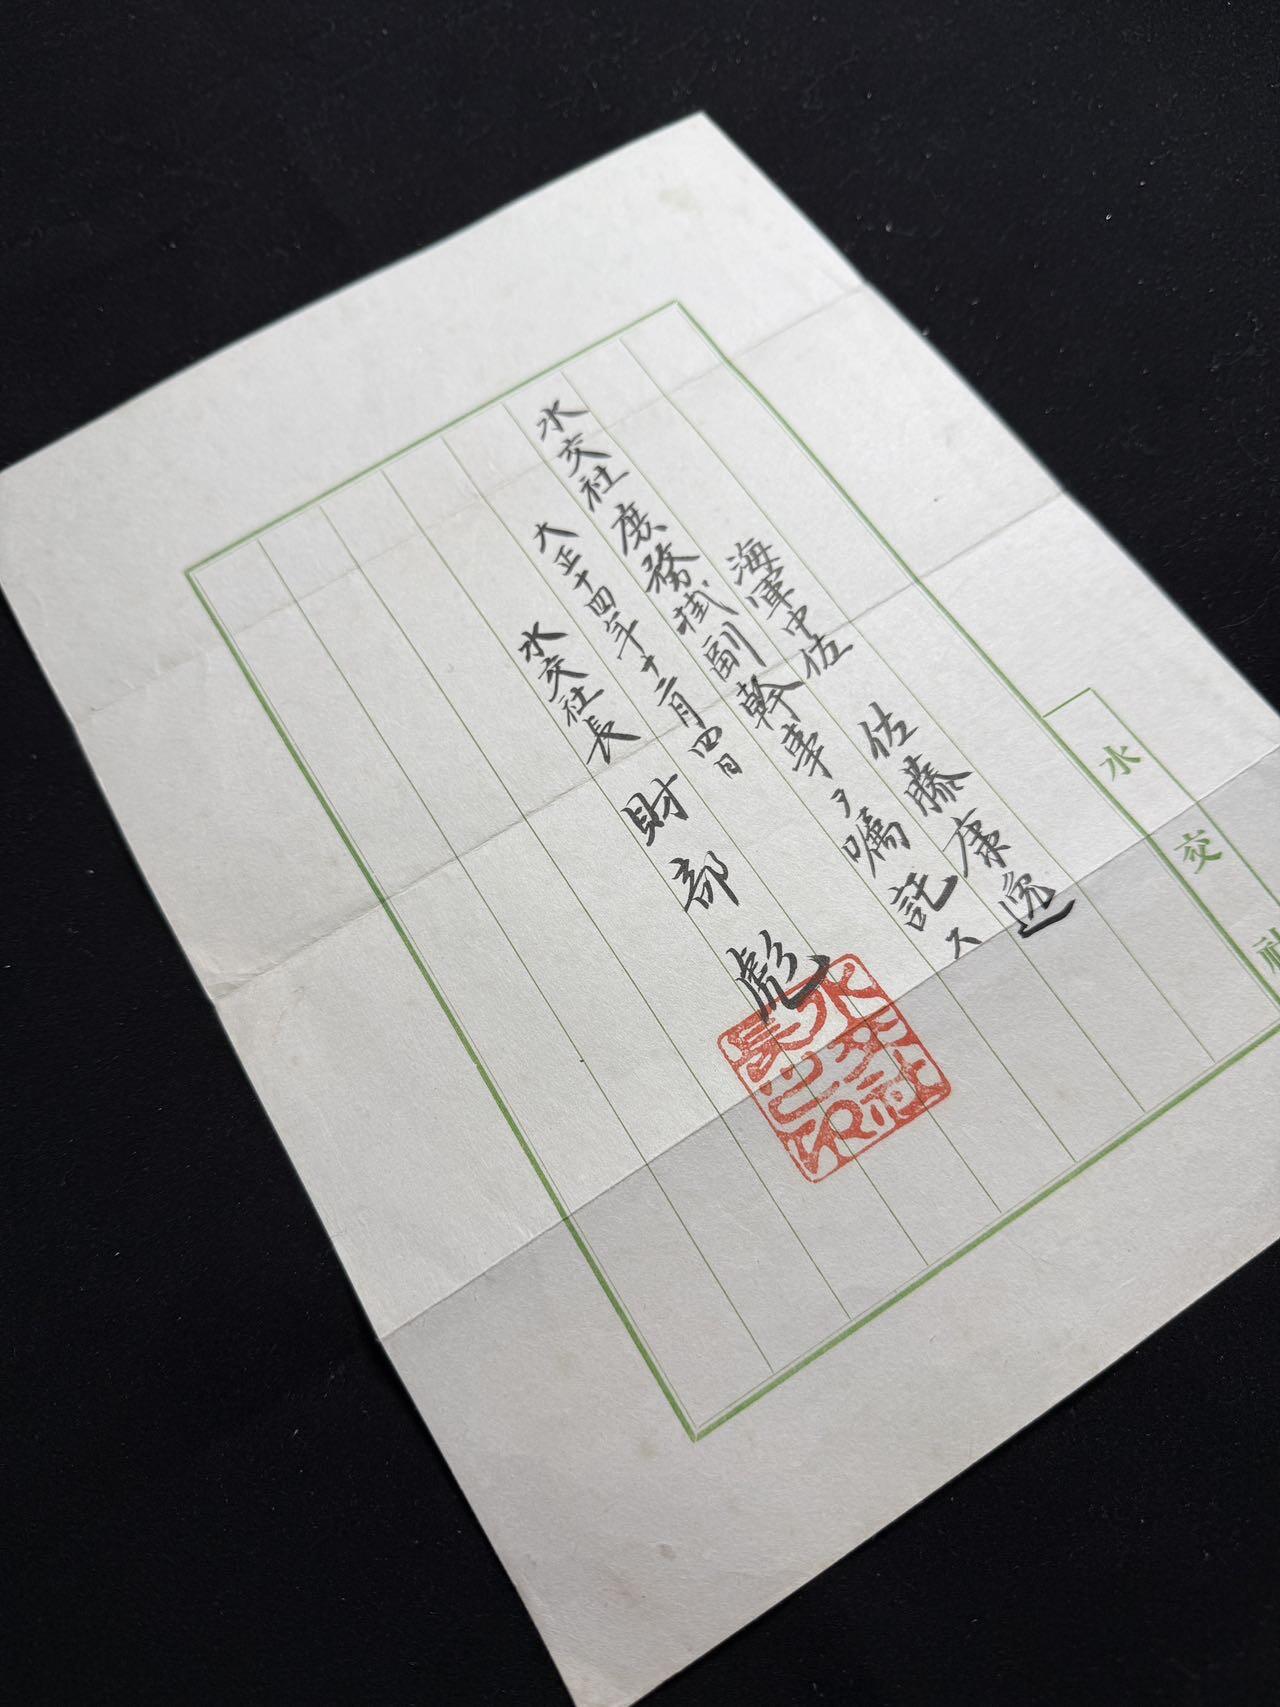 海軍中佐 佐藤康逸
水交社庶務掛副幹事ヲ嘱託ス
大正十四年十二月四日
水交社長 財部彪
水交社長之印
水交社